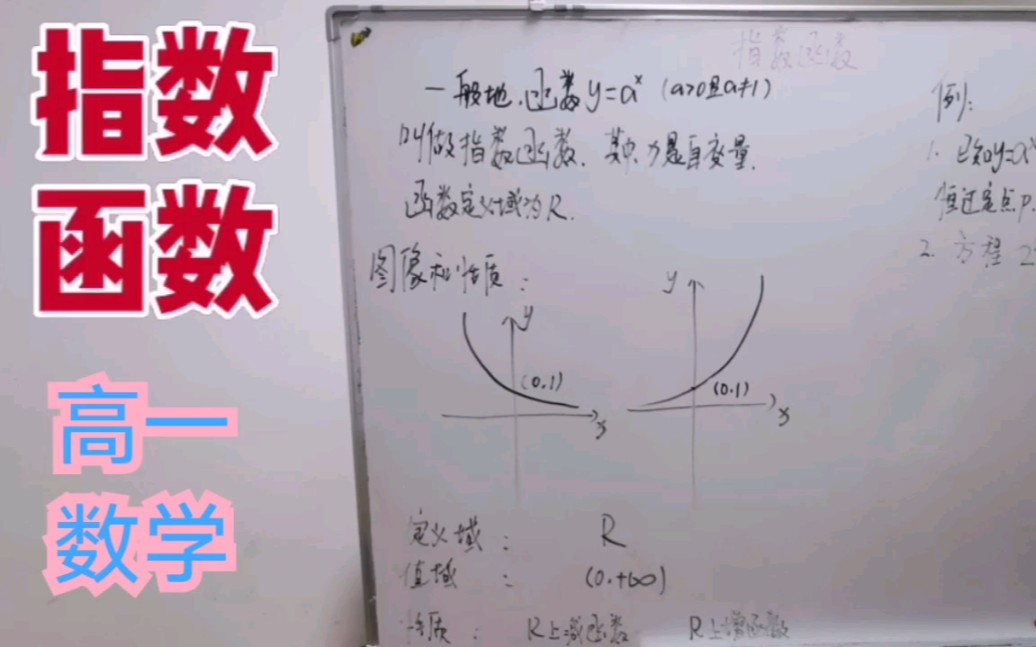 指数
函数
高一
数学
指数函数
一般地,函数y=aˣ (a>0且a≠1)
叫做指数函数.其中x是自变量.
函数定义域为R.
图像和性质:
y
(0.1)
x
y
(0.1)
x
定义域: R
值域: (0.+∞)
性质: R上减函数 R上增函数
例:
1. 已知y=a
恒过定点P.
2. 方程 2